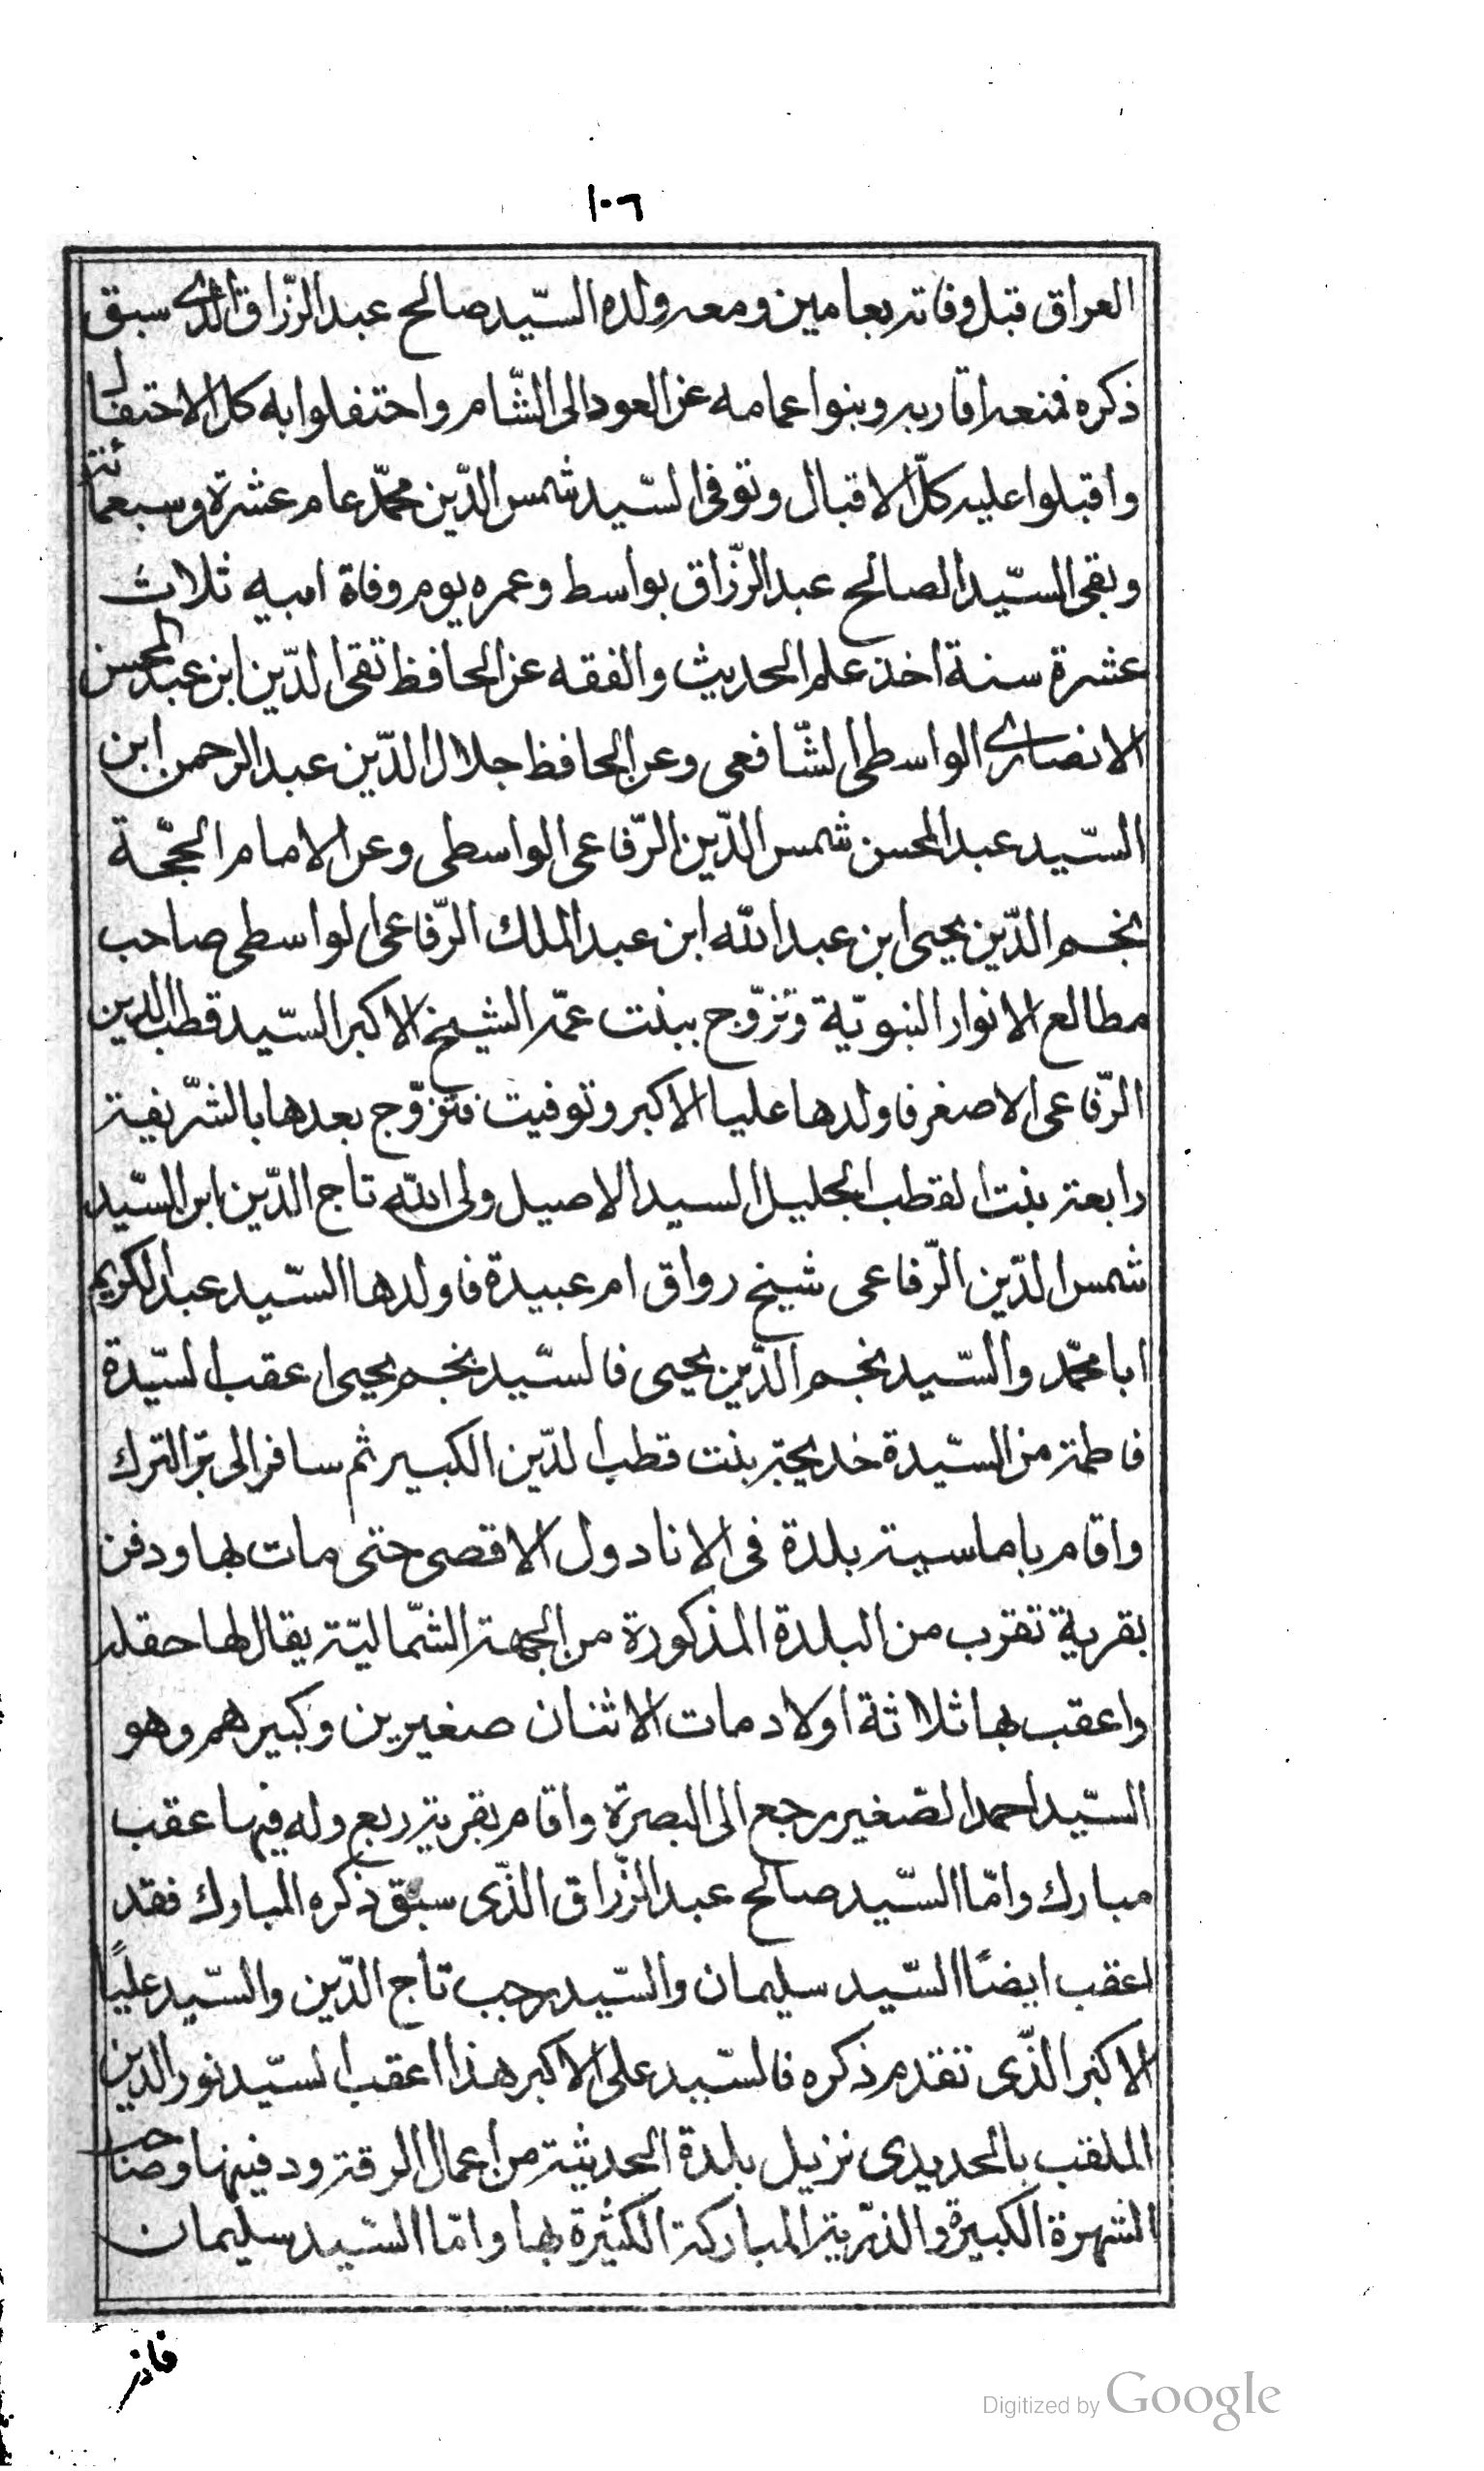 ١٠٦
العراق قبل وفاته بعامين ومعه ولده السّيد صالح عبد الرّزاق الذى سبق
ذكره فمنعه اقاربه وبنوا عمامه عن العود الى الشّام واحتفلوا به كل الاحتفال
واقبلوا عليه كلّ الاقبال وتوفى السّيد شمس الدّين محمّد عام عشرة وسبعمائة
وبقى السّيد الصالح عبد الرّزاق بواسط وعمره يوم وفاة ابيه ثلاث
عشرة سنة اخذ علم الحديث والفقه عن الحافظ تقى الدّين ابن عبد المحسن
الانصارى الواسطى الشّافعى وعن الحافظ جلال الدّين عبد الرحمن ابن
السّيد عبد المحسن شمس الدّين الرّفاعى الواسطى وعن الامام الحجّة
نجم الدّين يحيى ابن عبد الله ابن عبد الملك الرّفاعى الواسطى صاحب
مطالع الانوار النبويّة وتزوّج ببنت عمّه الشيخ الاكبر السّيد قطب الدين
الرّفاعى الاصغر فاولدها عليا الاكبر وتوفيت فتزوّج بعدها بالشّريفة
رابعة بنت القطب الجليل السيد الاصيل ولى الله تاج الدّين ابن السّيد
شمس الدّين الرّفاعى شيخ رواق ام عبيدة فاولدها السّيد عبد الكريم
ابا محمّد والسّيد نجم الدّين يحيى فالسّيد نجم يحيى اعقب السّيدة
فاطمة من السّيدة خديجة بنت قطب الدّين الكبير ثم سافر الى برّ الترك
واقام باماسية بلدة فى الانادول الاقصى حتى مات بها ودفن
بقرية تقرب من البلدة المذكورة من الجهة الشّماليّة يقال لها حقله
واعقب بها ثلاثة اولاد مات الاثنان صغيرين وكبيرهم وهو
السّيد احمد الصّغير رجع الى البصرة واقام بقرية ربع وله فيها عقب
مبارك وامّا السّيد صالح عبد الرّزاق الذّى سبق ذكره المبارك فقد
اعقب ايضًا السّيد سليمان والسّيد رجب تاج الدّين والسّيد عليًا
الاكبر الذّى تقدم ذكره فالسّيد على الاكبر هذا اعقب السّيد نور الدين
الملقب بالحديدى نزيل بلدة الحديثة من اعمال الرقة ودفينها وصاحب
الشهرة الكبيرة والذرّية المباركة الكثيرة بها وامّا السّيد سليمان
Digitized by Google